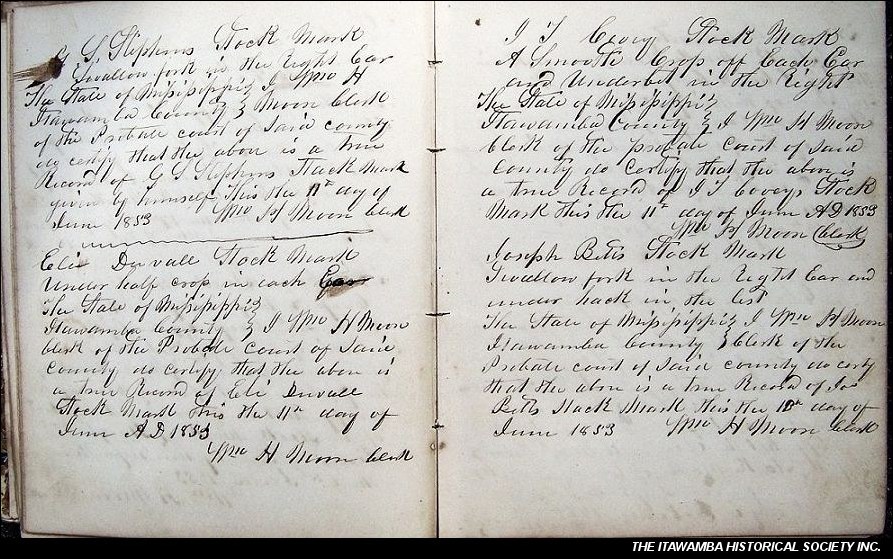 G S Stephens Stock Mark
Swallow fork in the Right Ear
The State of Missisippi } I Wm H
Itawamba County } Moon Clerk
of the Probate court of Said county
do certify that the above is a true
Record of G S Stephens Stock Mark
given by himself This the 11th day of
June 1853 Wm H Moon Clerk
Eli Duvall Stock Mark
Under half crop in each Ear
The State of Missisippi }
Itawamba County } I Wm H Moon
Clerk of the Probate Court of Said
County do certify that the above is
a true Record of Eli Duvall
Stock Mark This the 11th day of
June A D 1853
Wm H Moon Clerk
J T Covey Stock Mark
A Smooth Crop off Each Ear
and Underbit in the Right
The State of Missisippi }
Itawamba County } I Wm H Moon
Clerk of the probate Court of Said
County do Certify that the above is
a true Record of J T Coveys Stock
Mark this the 11th day of June A D 1853
Wm H Moon Clerk
Joseph Betts Stock Mark
Swallow fork in the Right Ear and
under hack in the left
The State of Missisippi } I Wm H Moon
Itawamba County } Clerk of the
Probate court of Said county do certy
that the above is a true Record of Jos
Betts Stock Mark this the day of
June 1853 Wm H Moon Clerk
THE ITAWAMBA HISTORICAL SOCIETY INC.